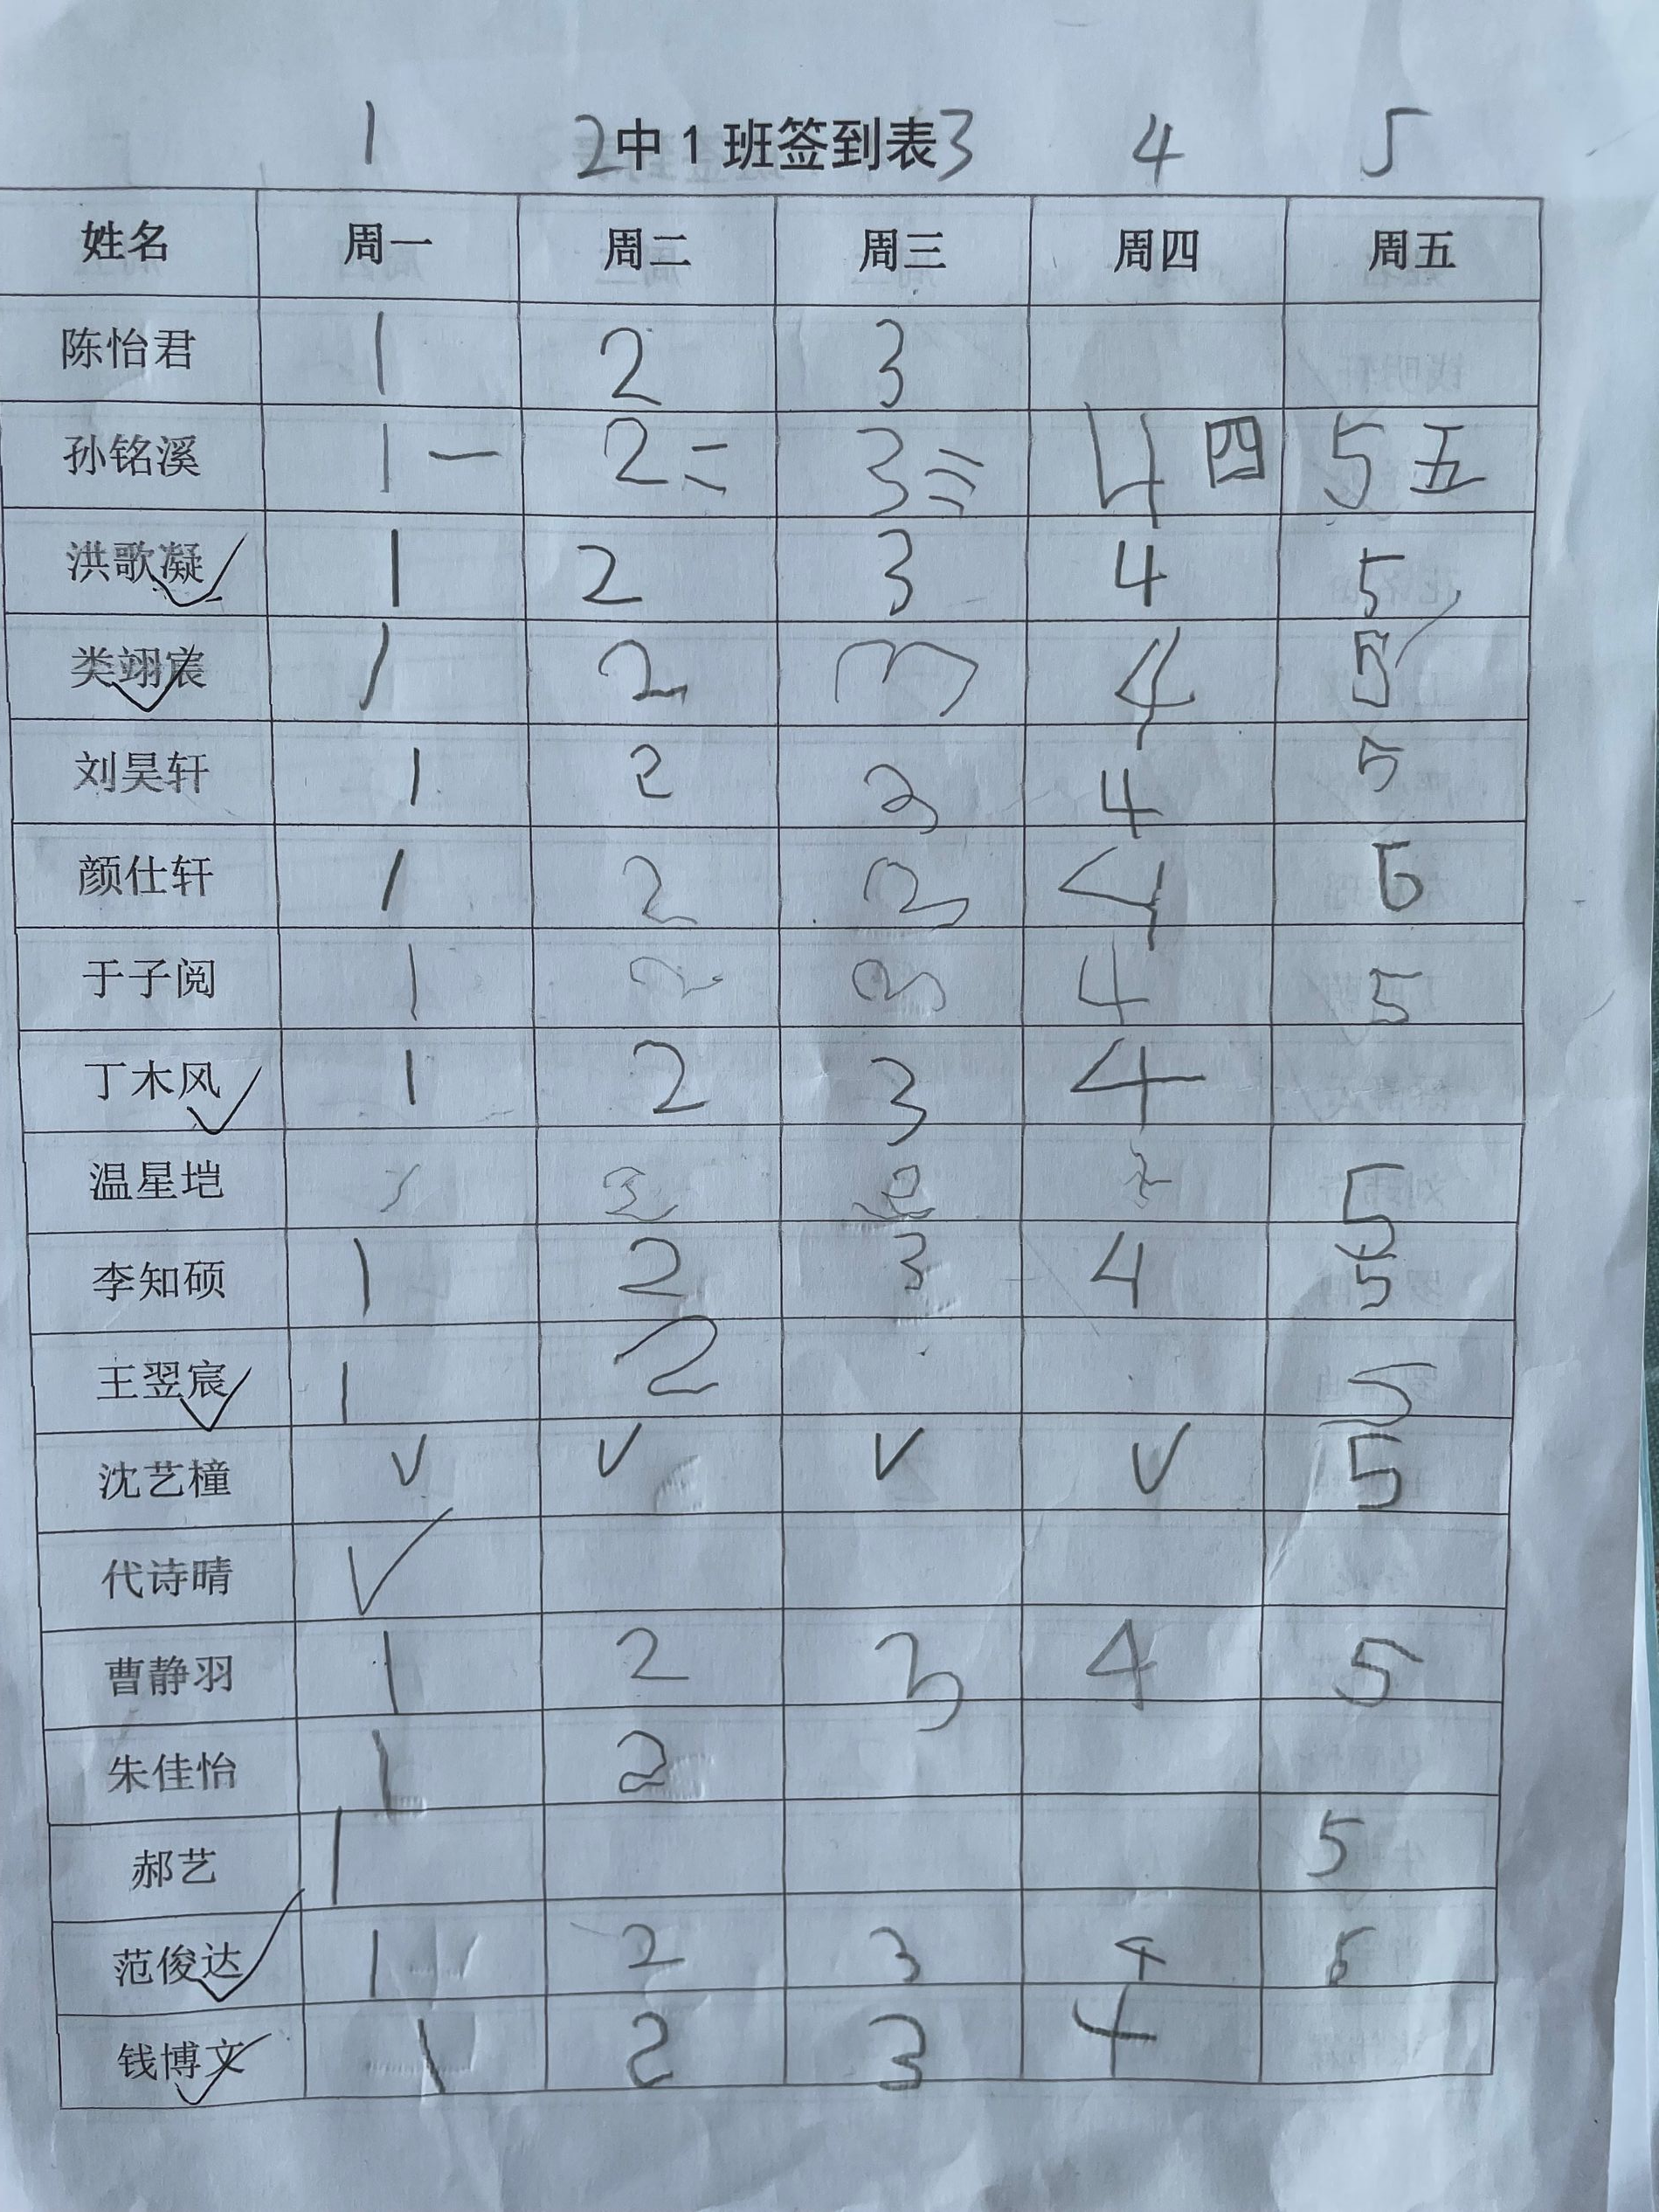 1 2 中1班签到表 3 4 5
姓名 周一 周二 周三 周四 周五
陈怡君 1 2 3
孙铭溪 1 一 2 二 3 三 4 四 5 五
洪歌凝 ✓ 1 2 3 4 5
类翊宸 ✓ 1 2 3 4 5
刘昊轩 1 2 3 4 5
颜仕轩 1 2 3 4 5
于子阅 1 2 3 4 5
丁木风 ✓ 1 2 3 4
温星垲 5
李知硕 1 2 3 4 5
王翌宸 ✓ 1 2 5
沈艺橦 ✓ ✓ ✓ ✓ 5
代诗晴 ✓
曹静羽 1 2 3 4 5
朱佳怡 1 2
郝艺 1 5
范俊达 ✓ 1 2 3 4 5
钱博文 ✓ 1 2 3 4